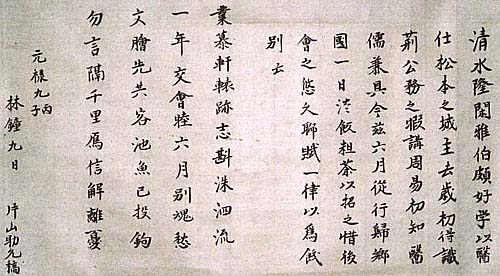 清水隆閑雅伯頗好学以醫
仕松本之城主去歳初得識
荊公務之暇講周易初知醫
儒兼具今茲六月從行歸郷
國一日淡飯粗茶以招之惜後
會之悠久聊賦一律以爲低
別云
業慕軒轅跡志斟洙泗流
一年交會睦六月別魂愁
文膾先共客池魚已投鉤
勿言隔千里鴈信解離憂
元禄九丙子
林鐘九日
片山勒九稿